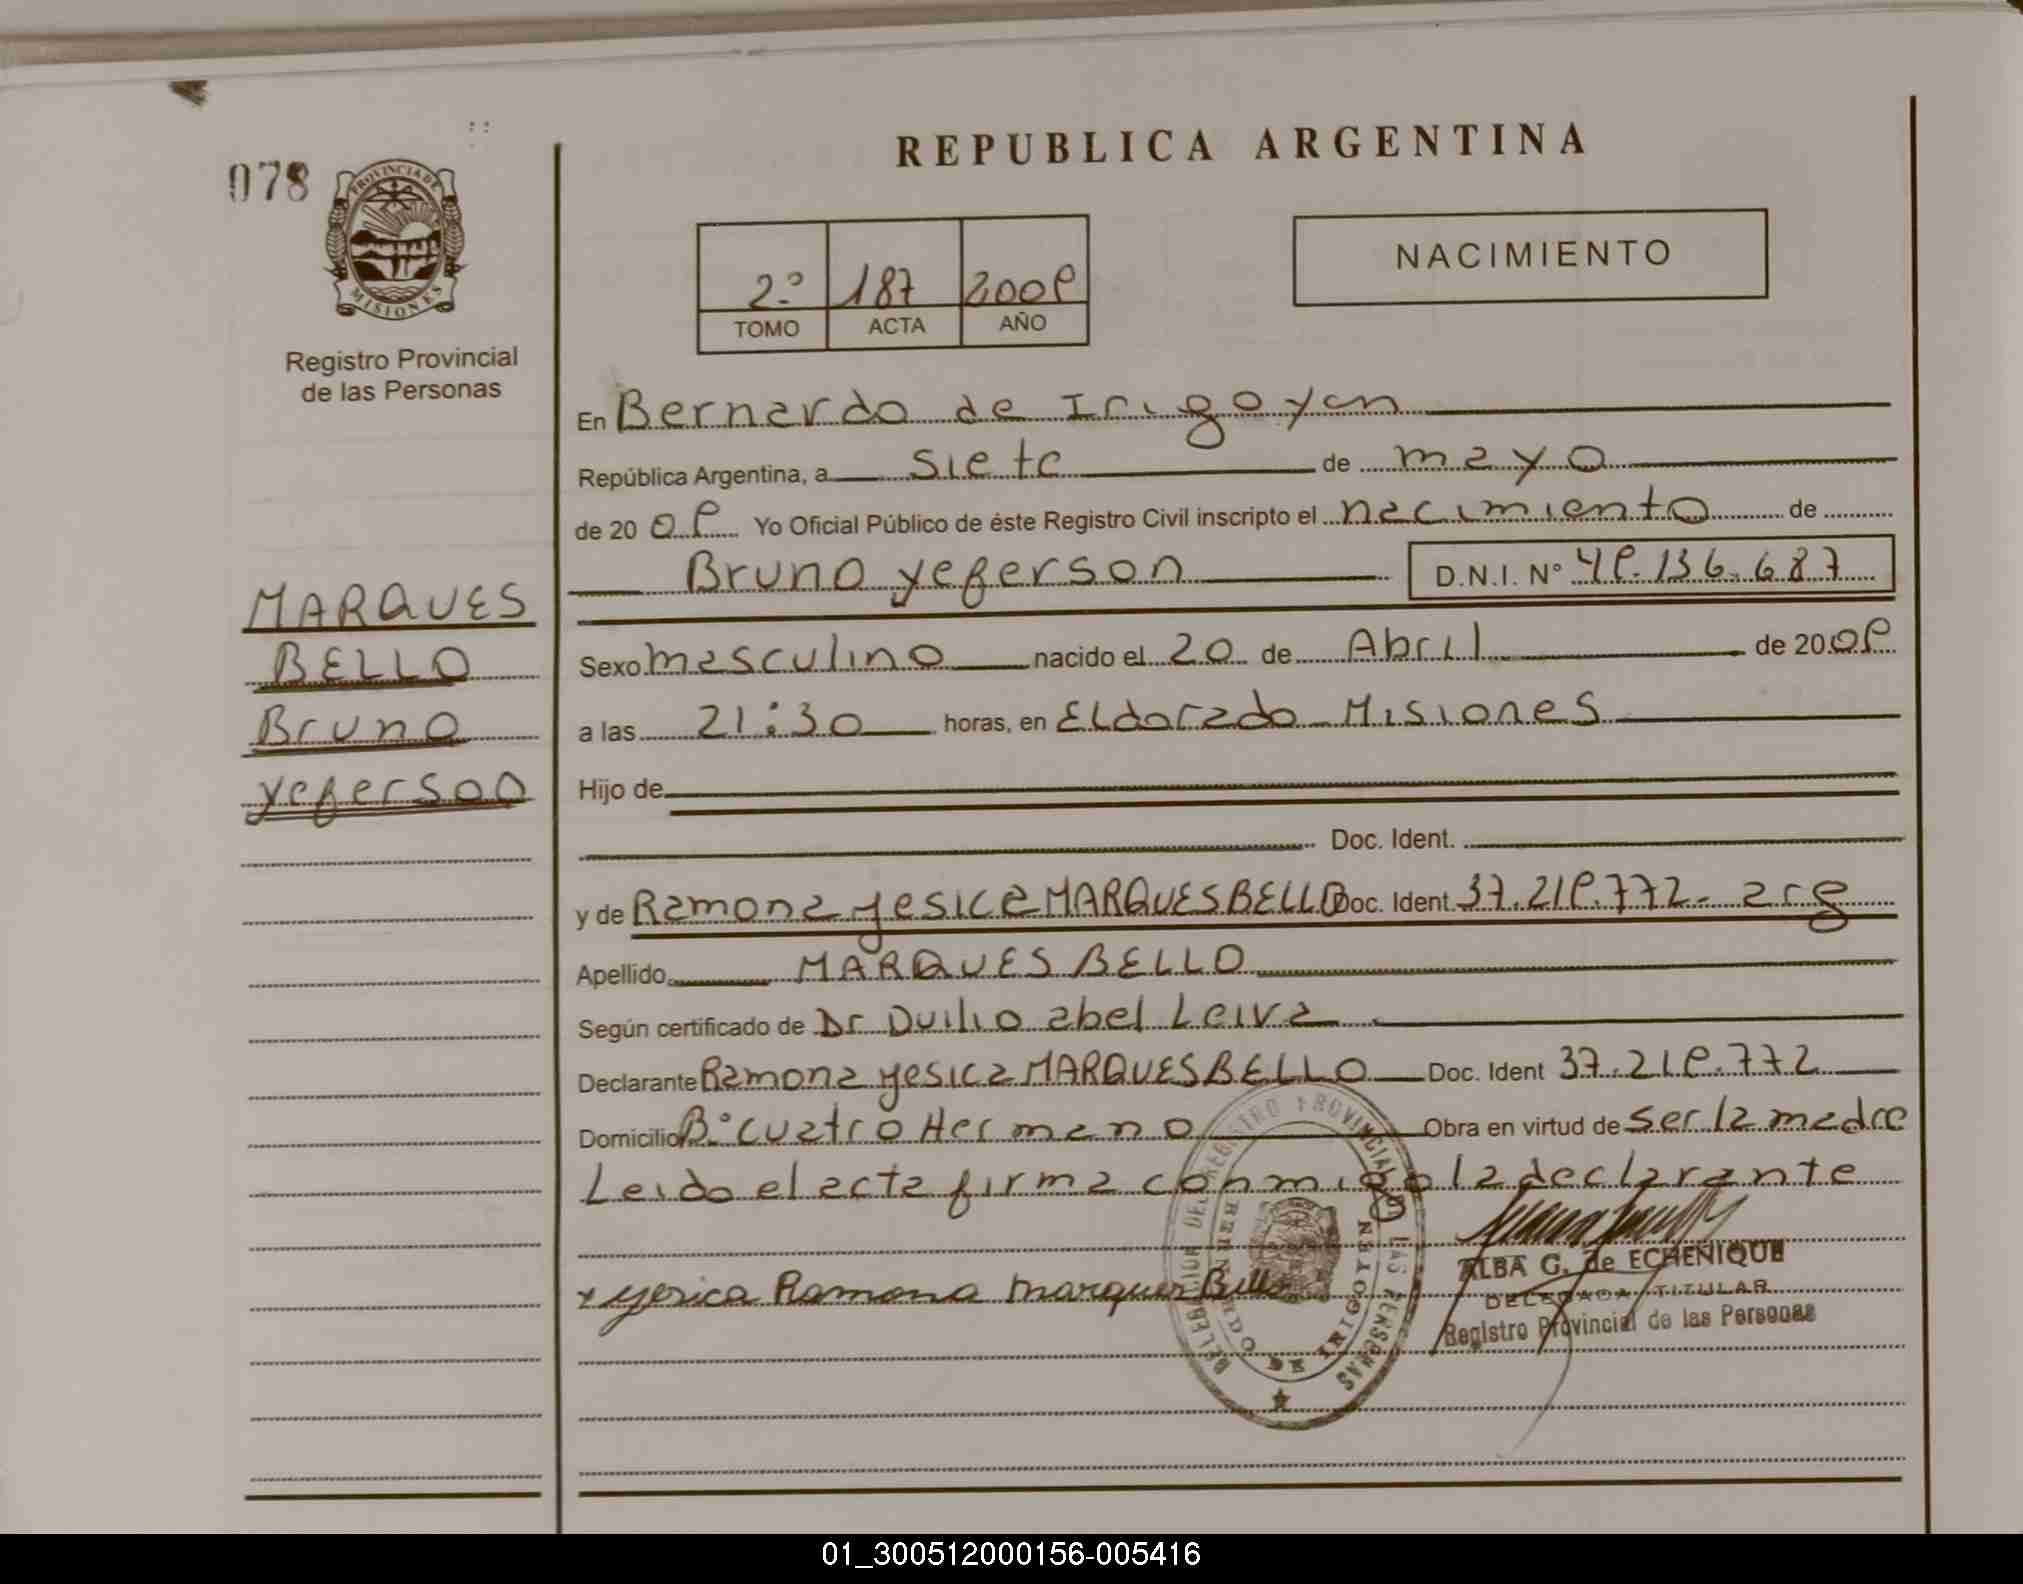 REPUBLICA ARGENTINA
078
PROVINCIA DE
MISIONES
Registro Provincial
de las Personas
2º 187 2009
TOMO ACTA AÑO
NACIMIENTO
En Bernardo de Irigoyen
República Argentina, a siete de mayo
de 2009 Yo Oficial Público de éste Registro Civil inscripto el nacimiento de
Bruno yeferson D.N.I. Nº 49.136.687
MARQUES
BELLO
Bruno
yeferson
Sexo masculino nacido el 20 de Abril de 2009
a las 21:30 horas, en Eldorado Misiones
Hijo de
Doc. Ident.
y de Ramona yesica MARQUES BELLO Doc. Ident. 37.219.772- arg
Apellido MARQUES BELLO
Según certificado de Dr Duilio abel Leiva
Declarante Ramona yesica MARQUES BELLO Doc. Ident 37.219.772
Domicilio Bº cuatro Hermano Obra en virtud de ser la madre
Leido el acta firma conmigo la declarante
x yesica Ramona Marques Bello
DELEGACION DEL REGISTRO PROVINCIAL DE LAS PERSONAS
BERNARDO DE IRIGOYEN
ALBA G. de ECHENIQUE
DELEGADA TITULAR
Registro Provincial de las Personas
01_300512000156-005416